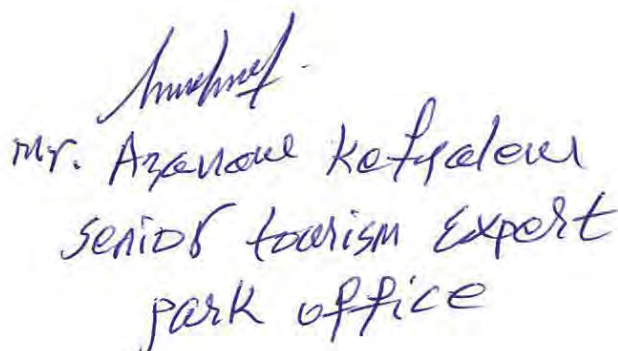 Mr. Azanaw Kefyalew
Senior tourism Expert
park office